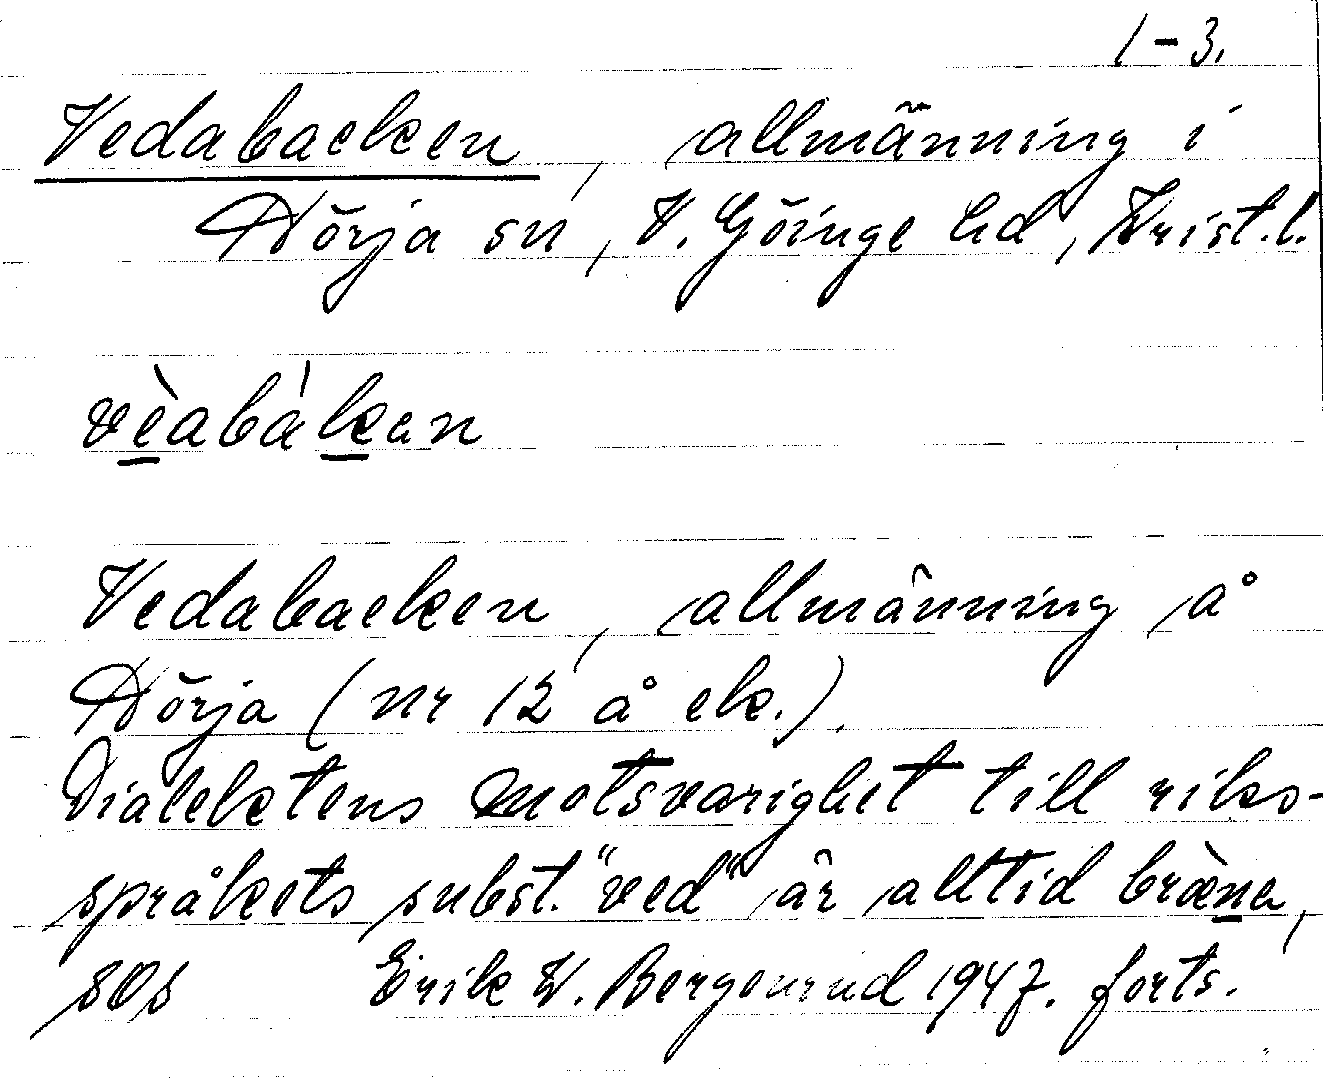 1-3.
Vedabacken, allmänning i
Nörja sn, V. Göinge hd, Krist.l.
vèabàkan
Vedabacken, allmänning å
Nörja (nr 12 å ek.).
Dialektens motsvarighet till riks-
språkets subst. "ved" är alltid bræna,
sOs Erik W. Bergenrud 1947. forts.